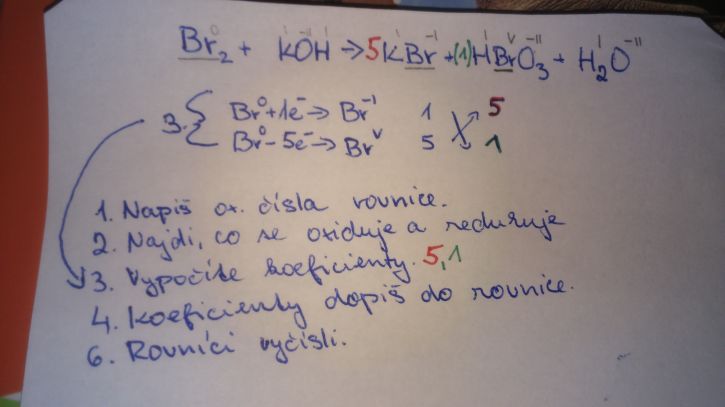 Br₂⁰ + KᴵO⁻ᴵᴵHᴵ → 5KᴵBr⁻ᴵ + (1)HᴵBrⱽO₃⁻ᴵᴵ + H₂ᴵO⁻ᴵᴵ
3. { Br⁰ + 1e⁻ → Br⁻ᴵ 1 5
Br⁰ - 5e⁻ → Brⱽ 5 1
1. Napiš ox. čísla rovnice.
2. Najdi, co se oxiduje a redukuje
3. Vypočíte koeficienty. 5,1
4. Koeficienty dopiš do rovnice.
6. Rovnici vyčísli.